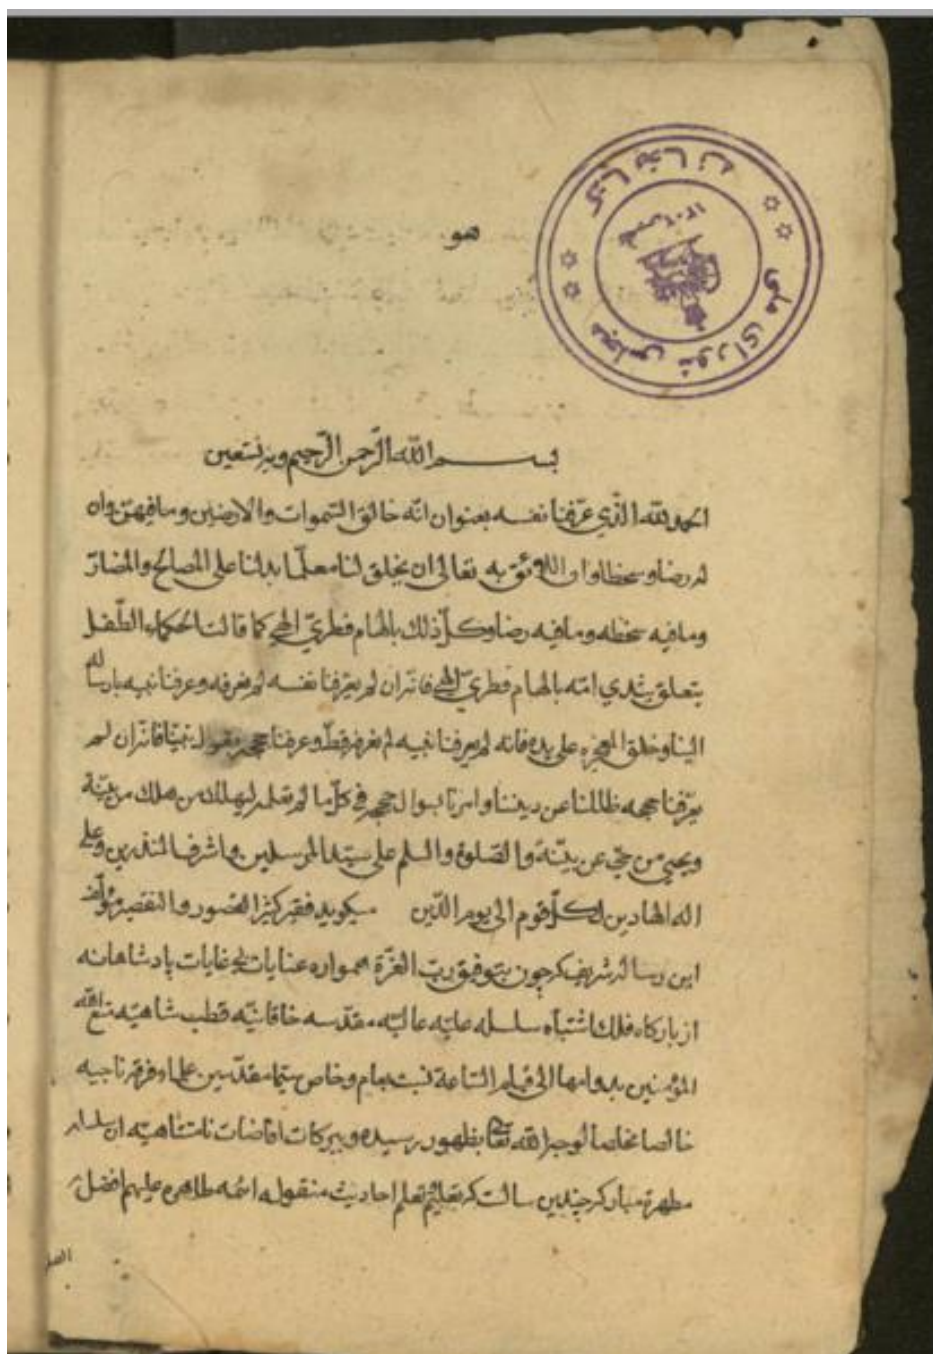 کتابخانه
مجلس شورای ملی
هو
بسم الله الرّحمن الرّحیم وبه نستعین
الحمد لله الذّي عرّفنا نفسه بعنوان انّه خالق السّموات والارضین وما فیهنّ وان
له رضا وسخطا وان اللائق به تعالی ان یخلق لنا معلّما یدلنا علی المصالح والمضارّ
وما فیه سخطه وما فیه رضا وکلّ ذلك بالهام فطريّ الهي کما قالت الحکماء الطّفل
یتعلق بثدي امّه بالهام فطريّ الهي فانّه ان لم یعرّفنا نفسه لم نعرفه وعرفنا نبیه بارساله
الینا وخلق المعجزه علی یده فانه لم یعرفنا نبیه لم نعرفه قطّ وعرفنا حججه بنبیّنا فانّه ان لم
یعرّفنا حججه ظللنا عن دیننا وامرنا بسوال حججه في کلّ ما لم نعلم لیهلك من هلك من بیّنة
ویحیی من حيّ عن بیّنة والصّلوة والسلم علی سیّد المرسلین واشرف المنذرین وعلی
اله الهادین لکلّ قوم الی یوم الدّین میکوید فقیر کثیر القصور والتقصیر مؤلّف
این رساله شریفه که چون بتوفیق ربّ العزّة همواره عنایات بی غایات پادشاهانه
از بارکاه فلك اشتباه سلسله علیّه عالیّه مقدّسه خاقانیّه قطب شاهیّه متّع الله
المؤمنین بدوامها الی قیام السّاعة نسبت بعام وخاص سیّما مقدّسین علماء فرقه ناجیه
خالصا مخلصا لوجه الله تعالی بظهور رسیده وببرکات افاضات نامتناهیّه ان سلسله
مطهره مبارکه چندین سالست که بتعلیم وتعلم احادیث منقوله ائمه طاهره علیهم افضل